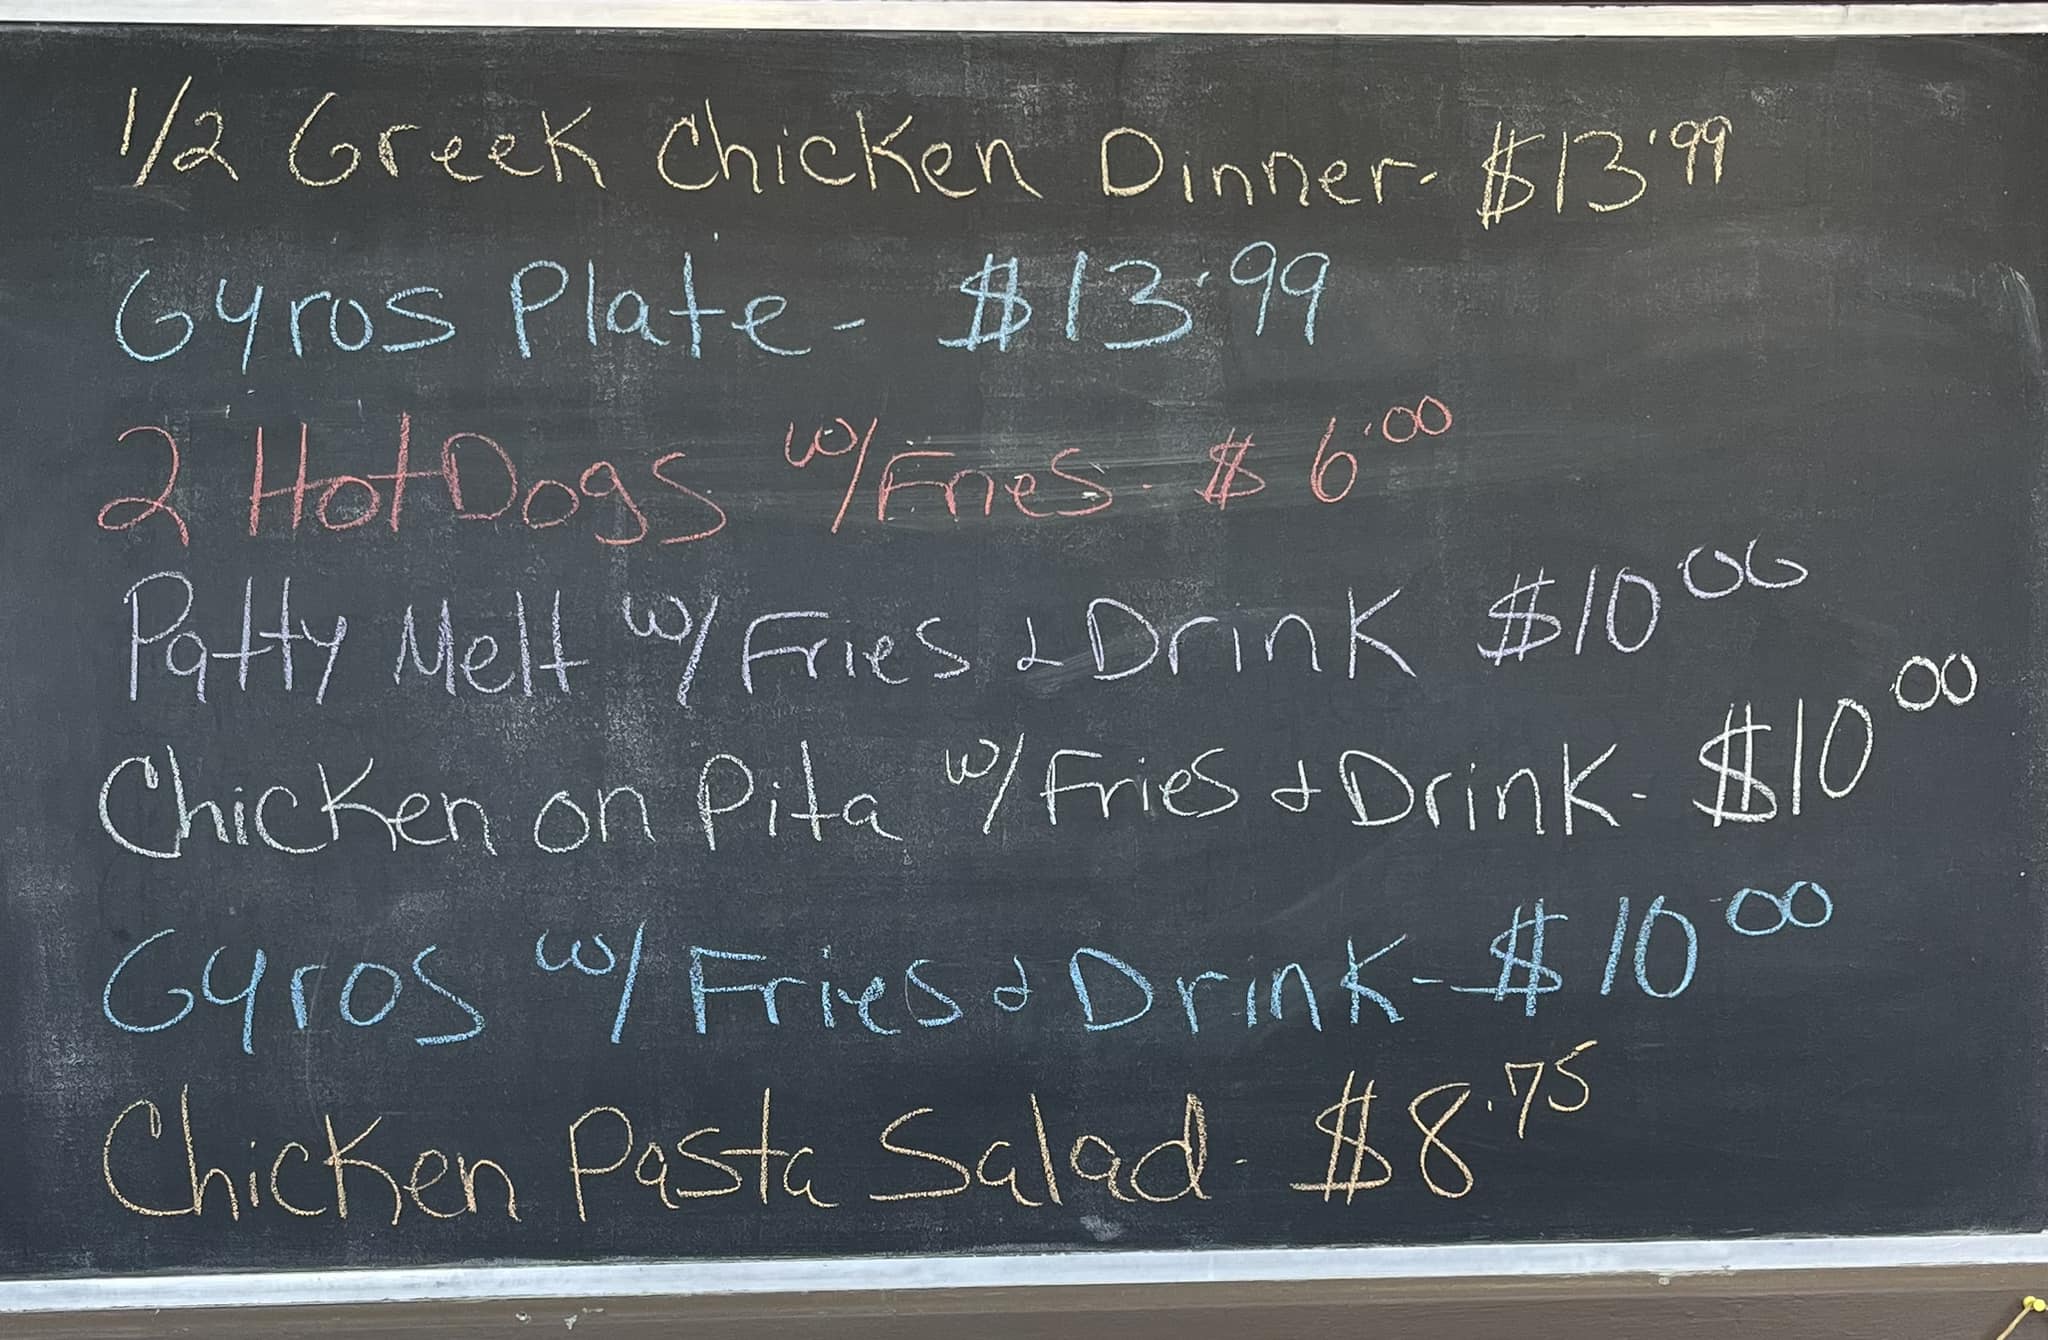 1/2 Greek Chicken Dinner- $13.99
Gyros Plate- $13.99
2 Hot Dogs w/Fries- $6.00
Patty Melt w/Fries & Drink $10.00
Chicken on Pita w/Fries & Drink- $10.00
Gyros w/Fries & Drink- $10.00
Chicken Pasta Salad- $8.75